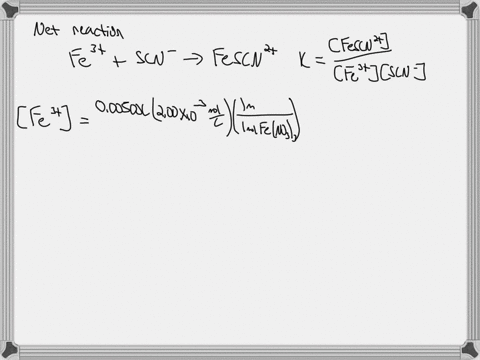 Net reaction
Fe³⁺ + SCN⁻ → FeSCN²⁺ K = [FeSCN²⁺] / [Fe³⁺][SCN⁻]
[Fe³⁺] = 0.00500L (2.00x10⁻³ mol/L) (1m / 1mol Fe(NO₃)₃)